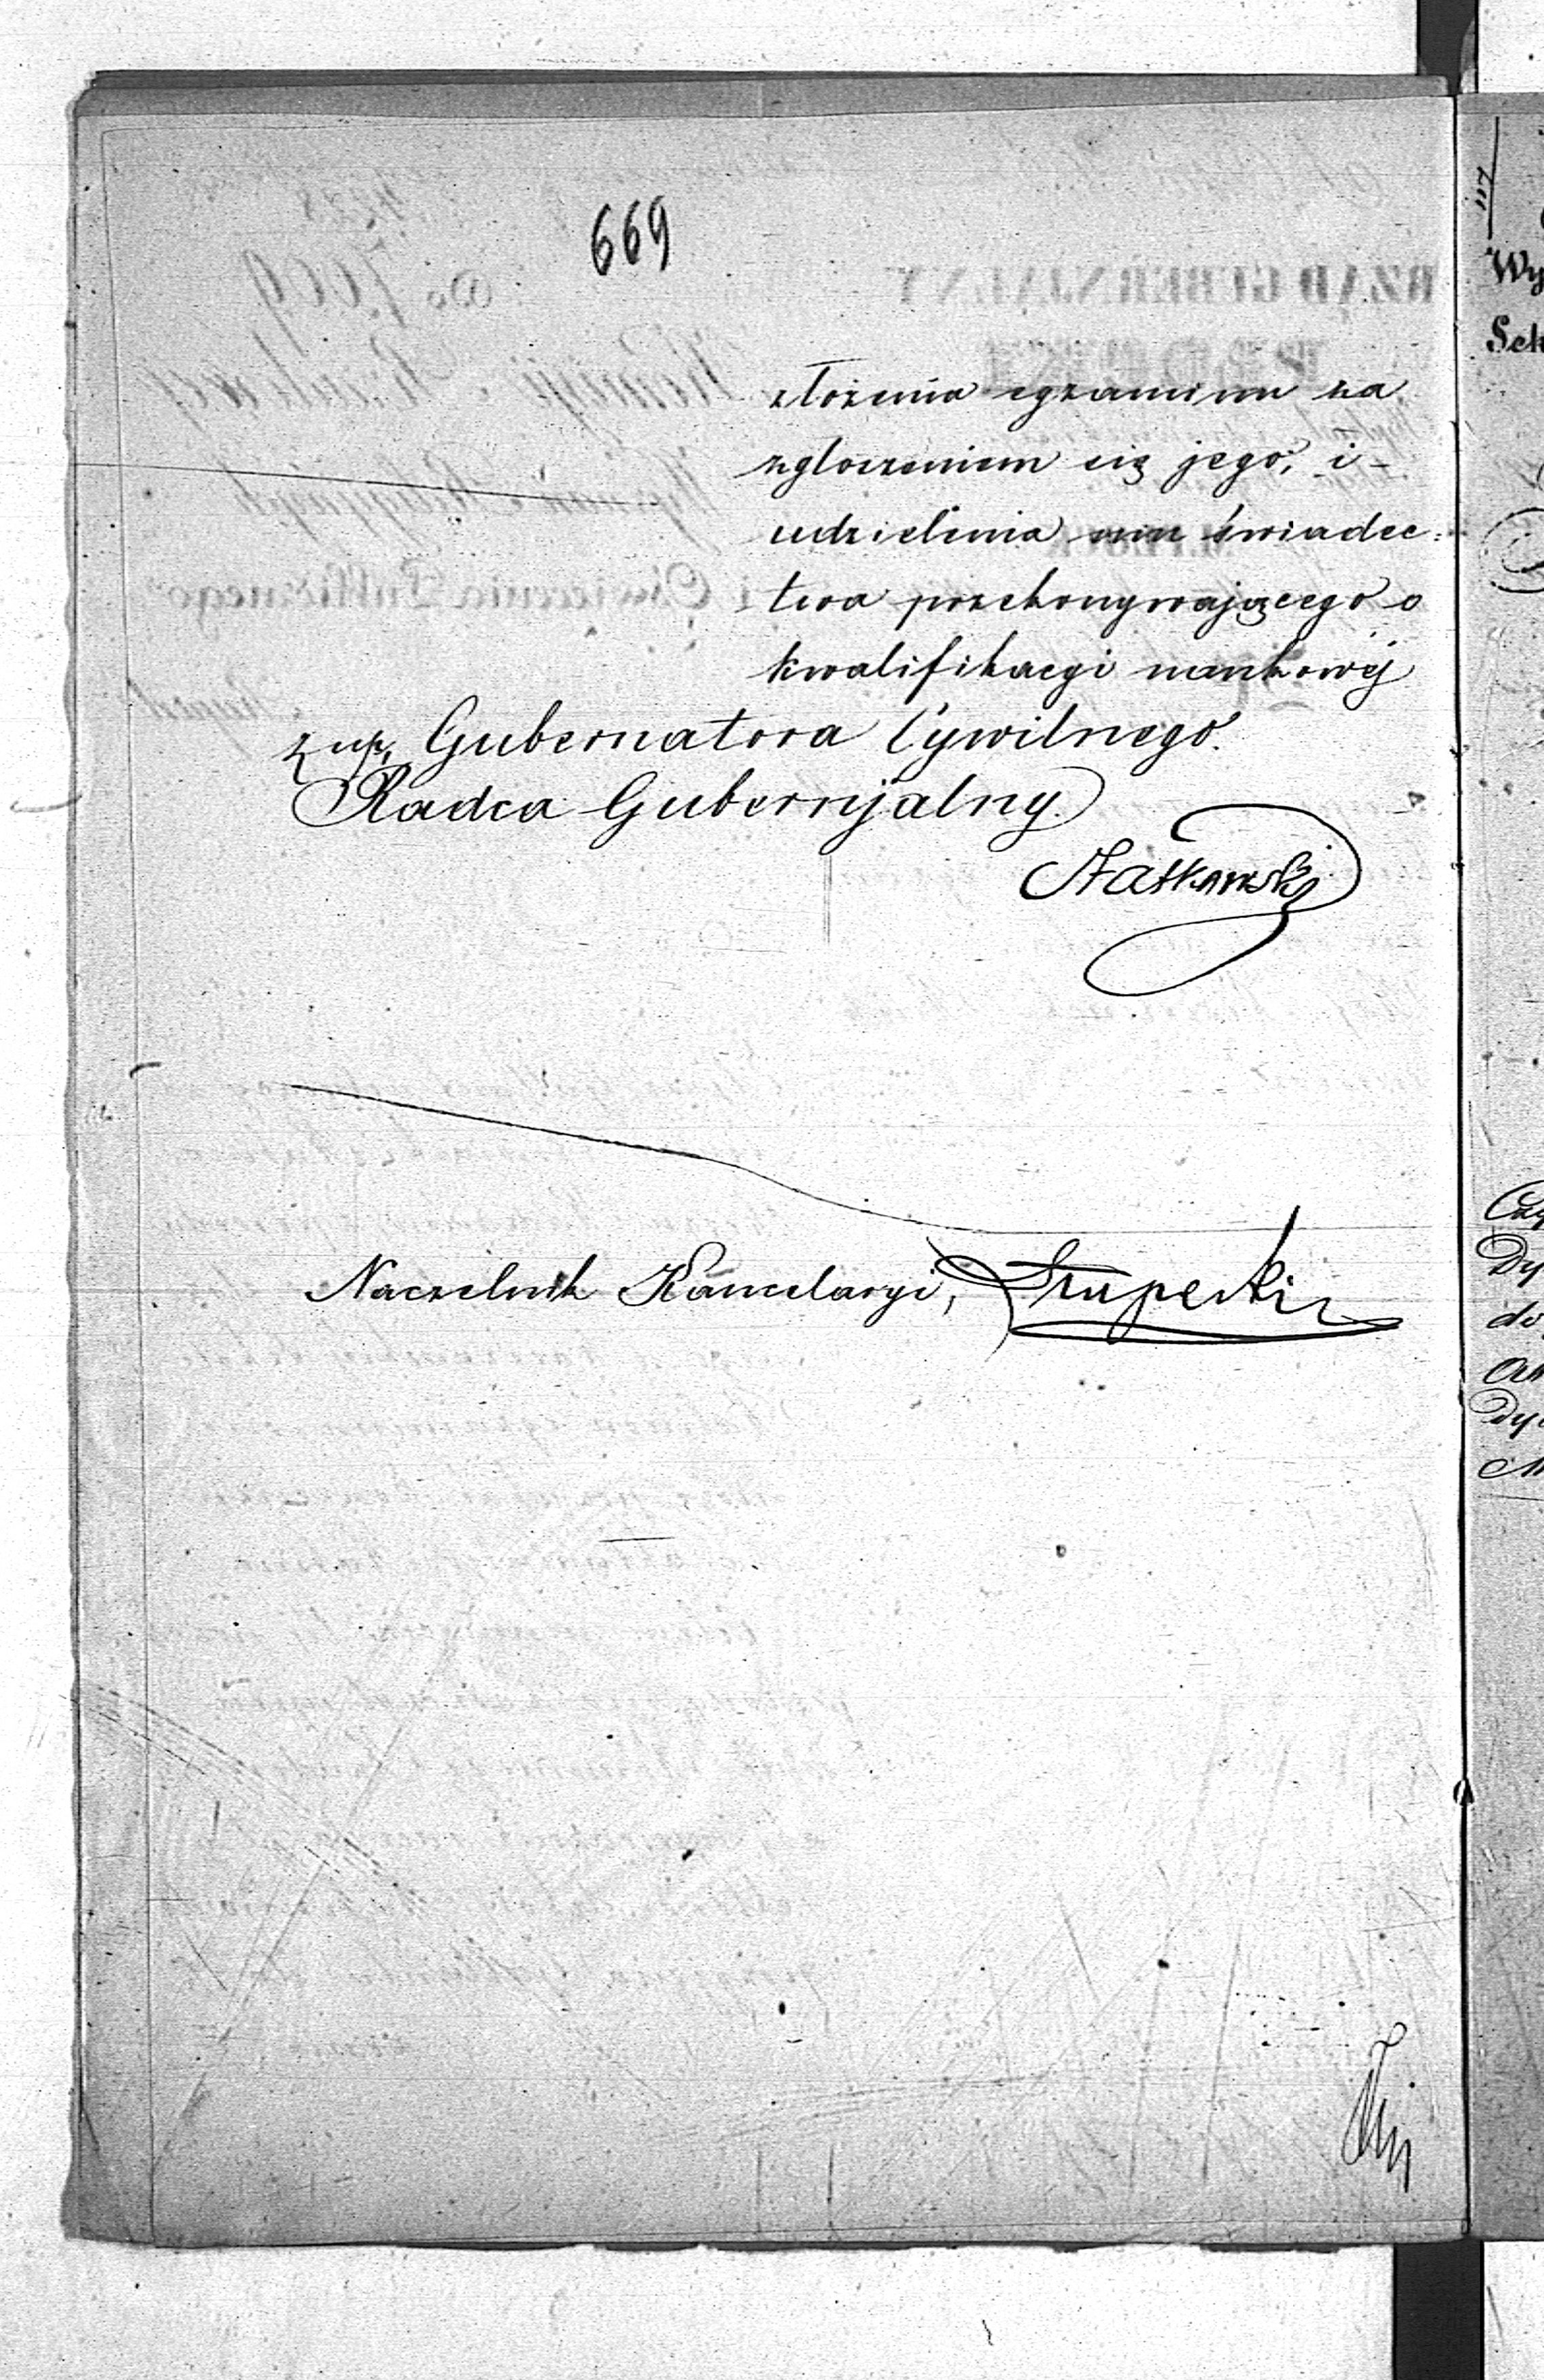 669
złożenia egzaminu za
zgłoszeniem się jego, i
udzielenia mu świadec=
twa przekonywającego o
kwalifikacyi naukowéj
z up. Gubernatora Cywilnego.
Radca Gubernjalny.
Naczelnik Kancelaryi,